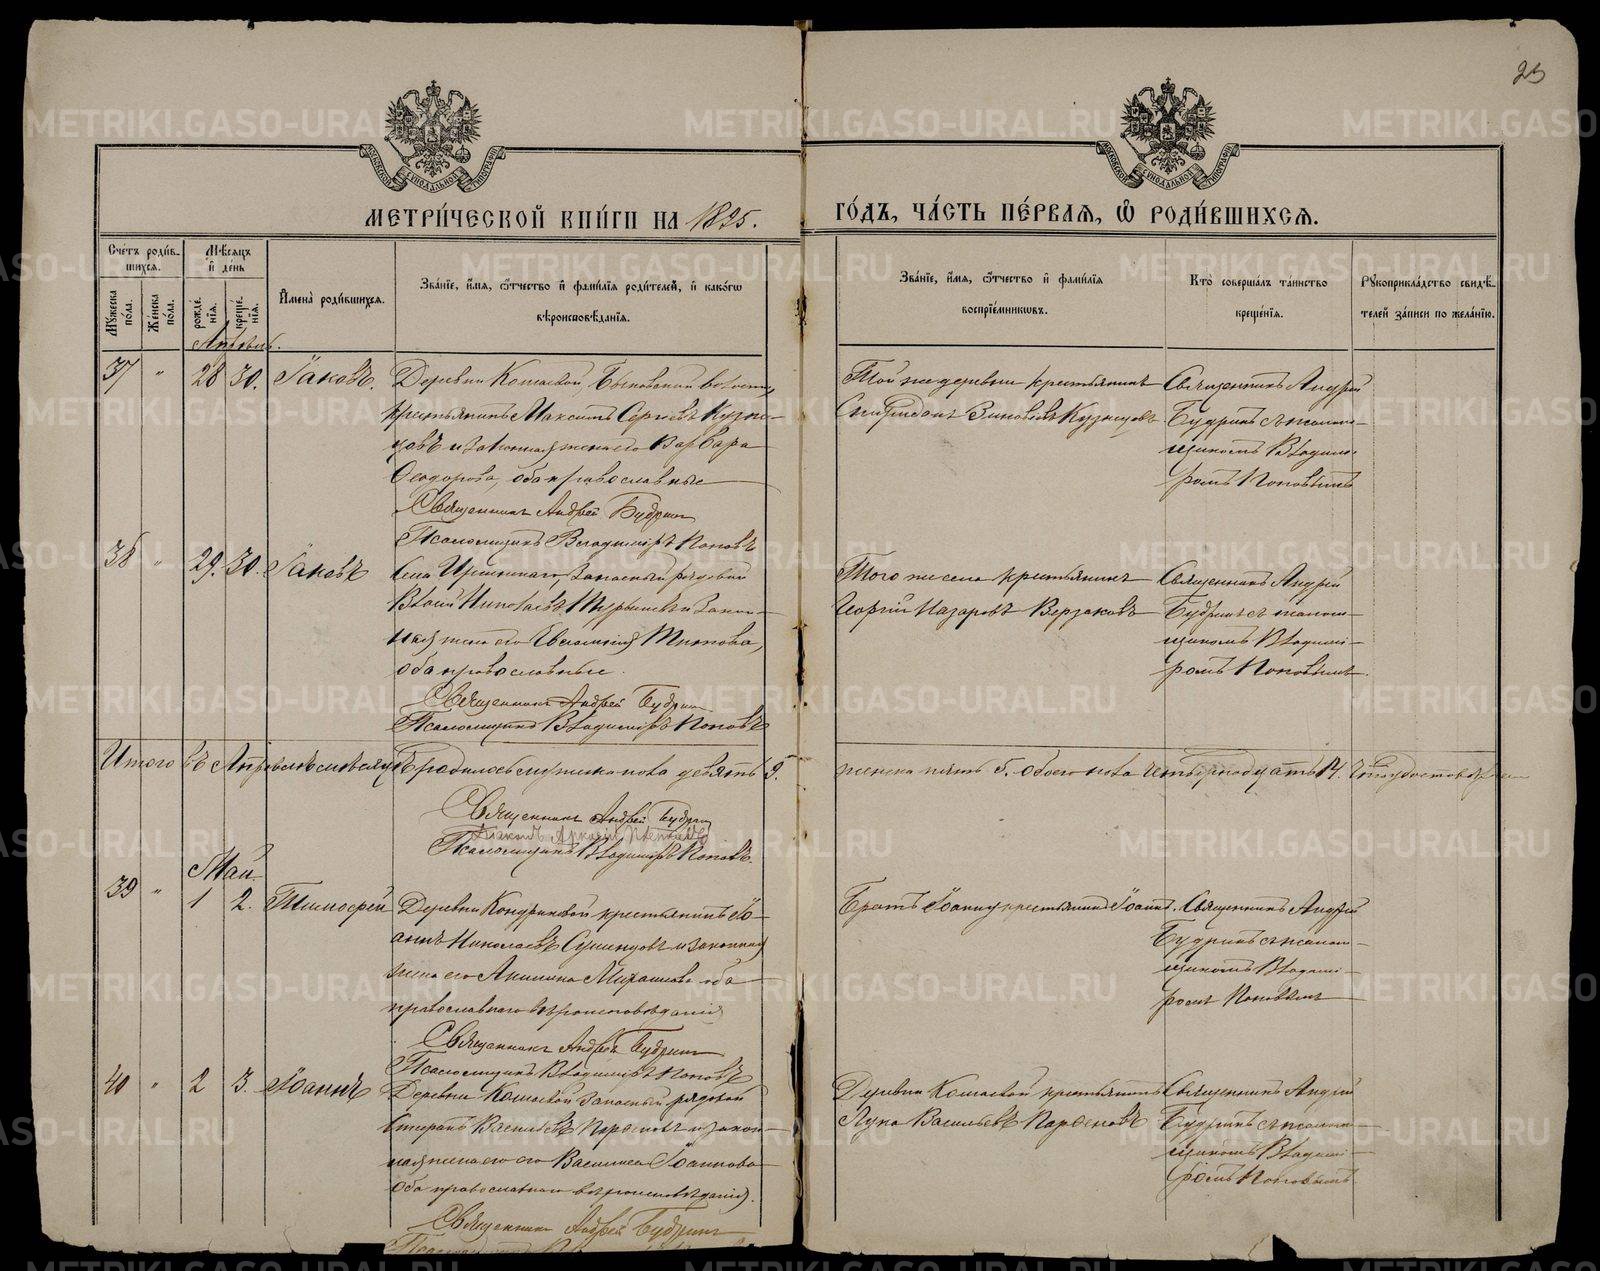 23
МОСКОВСКОЙ СѴНОДАЛЬНОЙ ТИПОГРАФІИ
МОСКОВСКОЙ СѴНОДАЛЬНОЙ ТИПОГРАФІИ
МЕТРИ́ЧЕСКОЙ КНИ́ГИ НА 1895.
ГО́ДЪ, ЧА́СТЬ ПЕ́РВАЯ, Ѿ РОДИ́ВШИХСЯ.
Сче́тъ роди́в-
шихся.
Мꙋ́жеска по́ла.
Же́нска по́ла.
Мѣ́сяцъ
и҆ де́нь
рожде́нїя.
креще́нїя.
И҆мена̀ роди́вшихся.
Зва́нїе, и҆́мя, ѻ҆́тчество и҆ фами́лїя роди́телей, и҆ како́гѡ
вѣроисповѣ́данїя.
Зва́нїе, и҆́мя, ѻ҆́тчество и҆ фами́лїя
воспрїе́мникѡвъ.
Кто̀ соверша́лъ та́инство
креще́нїя.
Рꙋкоприкла́дство свидѣ́-
телей за́писи по жела́нїю.
Апрѣль.
37 " 28 30. Іаковъ.
Деревни Кошаевой, волости
крестьянинъ Максимъ Сергіевъ Кузне-
цовъ и законная жена его Варвара
Ѳеодорова, оба православные
Священникъ Андрей Будринъ
Псаломщикъ Владиміръ Поповъ
Той же деревни крестьянинъ
Спиридонъ Зиновьевъ Кузнецовъ
Священникъ Андрей
Будринъ съ псалом-
щикомъ Владимі-
ромъ Поповымъ
38 " 29. 30. Іаковъ
Села запасный рядовой
Николаевъ и закон-
ная жена его Титова,
оба православные.
Священникъ Андрей Будринъ
Псаломщикъ Владиміръ Поповъ
Того же села крестьянинъ
Георгій Назаровъ Верзаковъ
Священникъ Андрей
Будринъ съ псалом-
щикомъ Владимі-
ромъ Поповымъ.
Итого въ Апрѣлѣ мѣсяцѣ родилось мужска пола девять 9.
женска пять 5. обоего пола четырнадцать 14.
Священникъ Андрей Будринъ
Псаломщикъ Владиміръ Поповъ.
Май.
39 " 1 2. Тимоѳей
Деревни Кондраковой крестьянинъ Іо-
аннъ Николаевъ и законная
жена его Акилина оба
православнаго вѣроисповѣданія
Священникъ Андрей Будринъ
Псаломщикъ Владиміръ Поповъ
Братъ крестьянинъ Іоаннъ.
Священникъ Андрей
Будринъ съ псалом-
щикомъ Владимі-
ромъ Поповымъ
40 " 2 3. Іоаннъ
Деревни Кошаевой запасный рядовой
Васильевъ Парѳеновъ и закон-
ная жена его Василиса Іоаннова
оба православнаго вѣроисповѣданія.
Священникъ Андрей Будринъ
Деревни Кошаевой крестьянинъ
Лука Васильевъ Парѳеновъ
Священникъ Андрей
Будринъ съ псалом-
щикомъ Владимі-
ромъ Поповымъ
METRIKI.GASO-URAL.RU